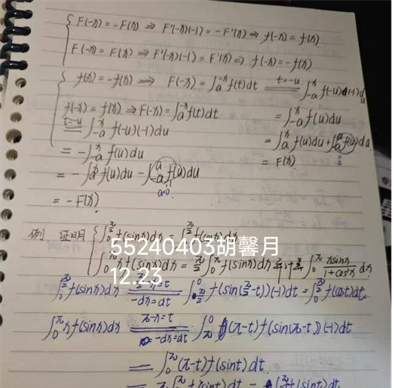 F(-x)=-F(x) ⇒ F'(-x)(-1)=-F'(x) ⇒ f(-x)=f(x)
F(-x)=F(x) ⇒ F'(-x)(-1)=F'(x) ⇒ f(-x)=-f(x)
f(-x)=-f(x) ⇒ F(-x)=∫_a^{-x} f(t)dt  t=-u  ∫_{-a}^{x} f(-u)(-1)du
f(-x)=f(x) ⇒ F(-x)=∫_a^{-x} f(t)dt  =∫_{-a}^{x} f(u)du
t=-u ∫_{-a}^{x} f(-u)(-1)du  =∫_a^x f(u)du+∫_{-a}^a f(u)du
=-∫_{-a}^{x} f(u)du  =F(x)
=-∫_a^x f(u)du-∫_{-a}^a f(u)du
a=0
=-F(x)
例 证明 ∫_0^{π/2} f(sinx)dx=∫_0^{π/2} f(cosx)dx
∫_0^π xf(sinx)dx=π/2∫_0^π f(sinx)dx 并计算∫_0^π xsinx/(1+cos²x) dx
55240403胡馨月
12.23
∫_0^{π/2} f(sinx)dx  π/2-x=t  -dx=dt  ∫_{π/2}^0 f(sin(π/2-t))(-1)dt=∫_0^{π/2} f(cost)dt
∫_0^π xf(sinx)dx  π-x=t  -dx=dt  ∫_π^0 (π-t)f(sin(π-t))(-1)dt
=∫_0^π (π-t)f(sint)dt